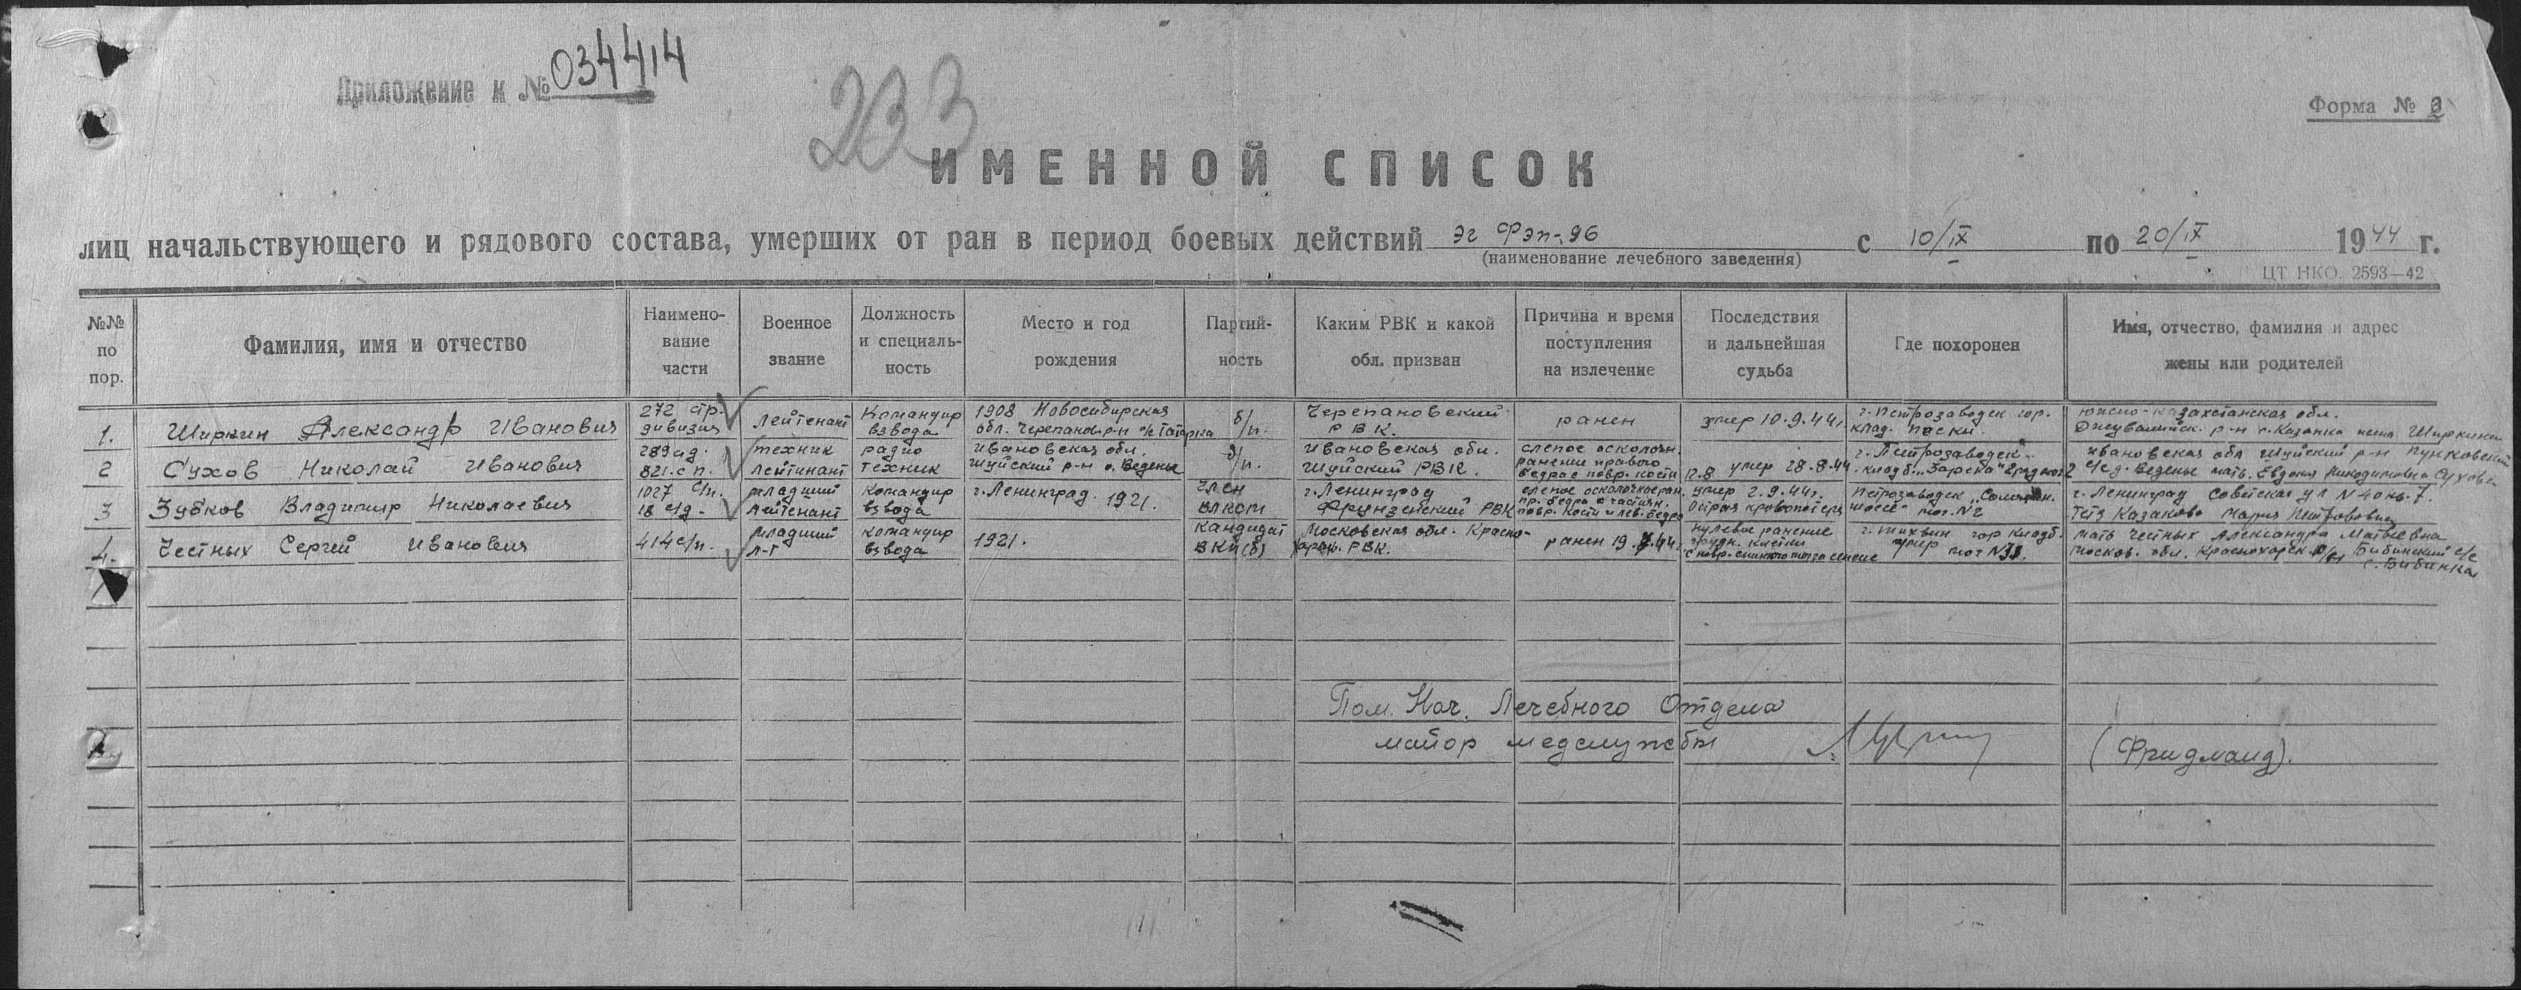 Приложение к № 034414
233
Форма № 3
ИМЕННОЙ СПИСОК
лиц начальствующего и рядового состава, умерших от ран в период боевых действий эг Фэп-96 с 10/IX по 20/IX 1944 г.
(наименование лечебного заведения)
ЦТ НКО. 2593—42
№№ по пор.
Фамилия, имя и отчество
Наимено-
вание
части
Военное
звание
Должность
и специаль-
ность
Место и год
рождения
Партий-
ность
Каким РВК и какой
обл. призван
Причина и время
поступления
на излечение
Последствия
и дальнейшая
судьба
Где похоронен
Имя, отчество, фамилия и адрес
жены или родителей
1.
Ширкин Александр Иванович
272 стр.
дивизия
лейтенант
Командир
взвода
1908 Новосибирская
обл. Черепанов. р-н
б/п.
Черепановский
РВК.
ранен
умер 10.9.44г.
г. Петрозаводск гор.
клад. пески.
Южно-Казахстанская обл.
Джувалинск. р-н с. Казанка жена Ширкина
2
Сухов Николай Иванович
289 сд.
821. с п.
техник
лейтинант
радио
техник
Ивановская обл.
Шуйский р-н д. Веденье
б/п.
Ивановская обл.
Шуйский РВК.
слепое осколочн.
ранение правого
бедра с повр. кости
умер 28.8.44
г. Петрозаводск
кладб. "Зарека"
Ивановская обл Шуйский р-н Пунковский
с/сд. Веденье мать. Евдокия Никодимовна Сухова
3
Зубков Владимир Николаевич
1027 с/п.
18 с/д.
младший
лейтенант
Командир
взвода
г. Ленинград. 1921.
член
влксм
г. Ленинград
Фрунзенский РВК
слепое осколочное ран.
пр. бедра с частичн.
повр. кости и лев. бедра
умер 2.9.44г.
Острая кровопотеря
Петрозаводск
шоссе" мог. №2
г. Ленинград Советская ул №40 кв. 7.
тетя Казакова Мария Митрофовна
4.
Честных Сергей Иванович
414 с/п.
младший
л-т
командир
взвода
1921.
кандидат
ВКП(б)
Московская обл. Красно-
горск. РВК.
ранен 19.7.44.
пулевое ранение
грудн. клетки
г. Тихвин гор кладб.
умер мог №33.
мать Честных Александра Матвеевна
Москов. обл. Красногорск. р/н Бибинский с/с
с. Бибинка
Пом. Нач. Лечебного Отдела
майор медслужбы
(Фридманд).